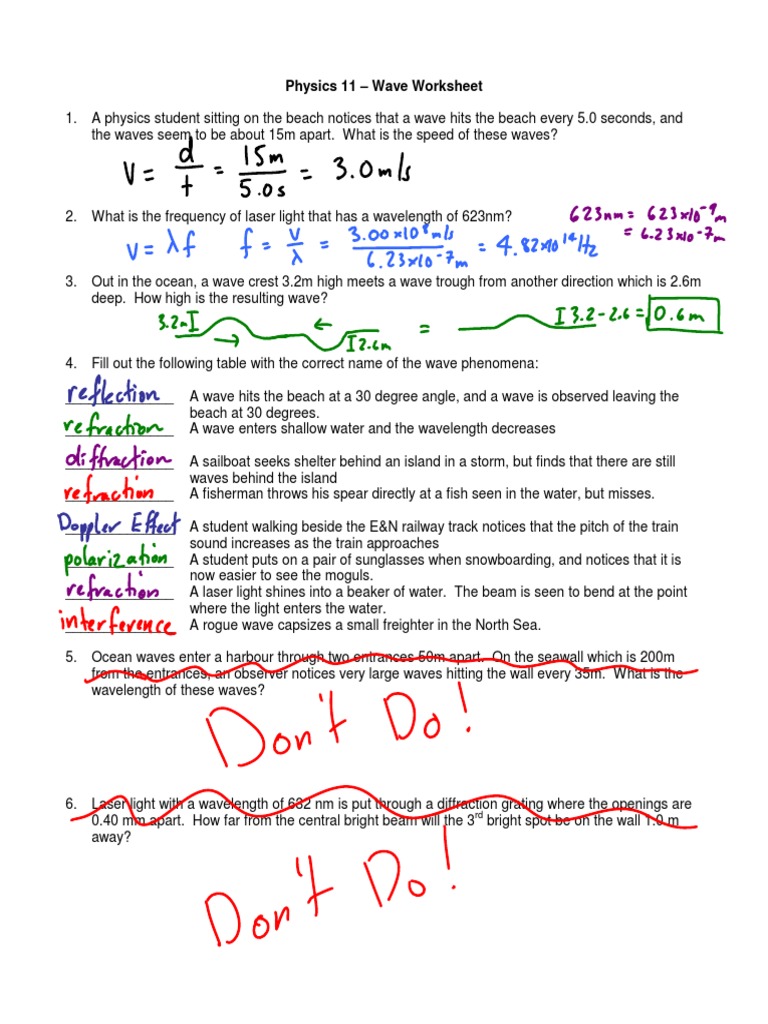 Physics 11 – Wave Worksheet
1. A physics student sitting on the beach notices that a wave hits the beach every 5.0 seconds, and
the waves seem to be about 15m apart. What is the speed of these waves?
V = d/t = 15m/5.0s = 3.0m/s
2. What is the frequency of laser light that has a wavelength of 623nm?
623nm = 623x10⁻⁹m
= 6.23x10⁻⁷m
V = λf f = V/λ = 3.00x10⁸m/s / 6.23x10⁻⁷m = 4.82x10¹⁴Hz
3. Out in the ocean, a wave crest 3.2m high meets a wave trough from another direction which is 2.6m
deep. How high is the resulting wave?
3.2m I → ← I 2.6m = I 3.2 - 2.6 = 0.6m
4. Fill out the following table with the correct name of the wave phenomena:
reflection A wave hits the beach at a 30 degree angle, and a wave is observed leaving the
beach at 30 degrees.
refraction A wave enters shallow water and the wavelength decreases
diffraction A sailboat seeks shelter behind an island in a storm, but finds that there are still
waves behind the island
refraction A fisherman throws his spear directly at a fish seen in the water, but misses.
Doppler Effect A student walking beside the E&N railway track notices that the pitch of the train
sound increases as the train approaches
polarization A student puts on a pair of sunglasses when snowboarding, and notices that it is
now easier to see the moguls.
refraction A laser light shines into a beaker of water. The beam is seen to bend at the point
where the light enters the water.
interference A rogue wave capsizes a small freighter in the North Sea.
5. Ocean waves enter a harbour through two entrances 50m apart. On the seawall which is 200m
from the entrances, an observer notices very large waves hitting the wall every 35m. What is the
wavelength of these waves?
Don't Do!
6. Laser light with a wavelength of 632 nm is put through a diffraction grating where the openings are
0.40 mm apart. How far from the central bright beam will the 3rd bright spot be on the wall 1.0 m
away?
Don't Do!